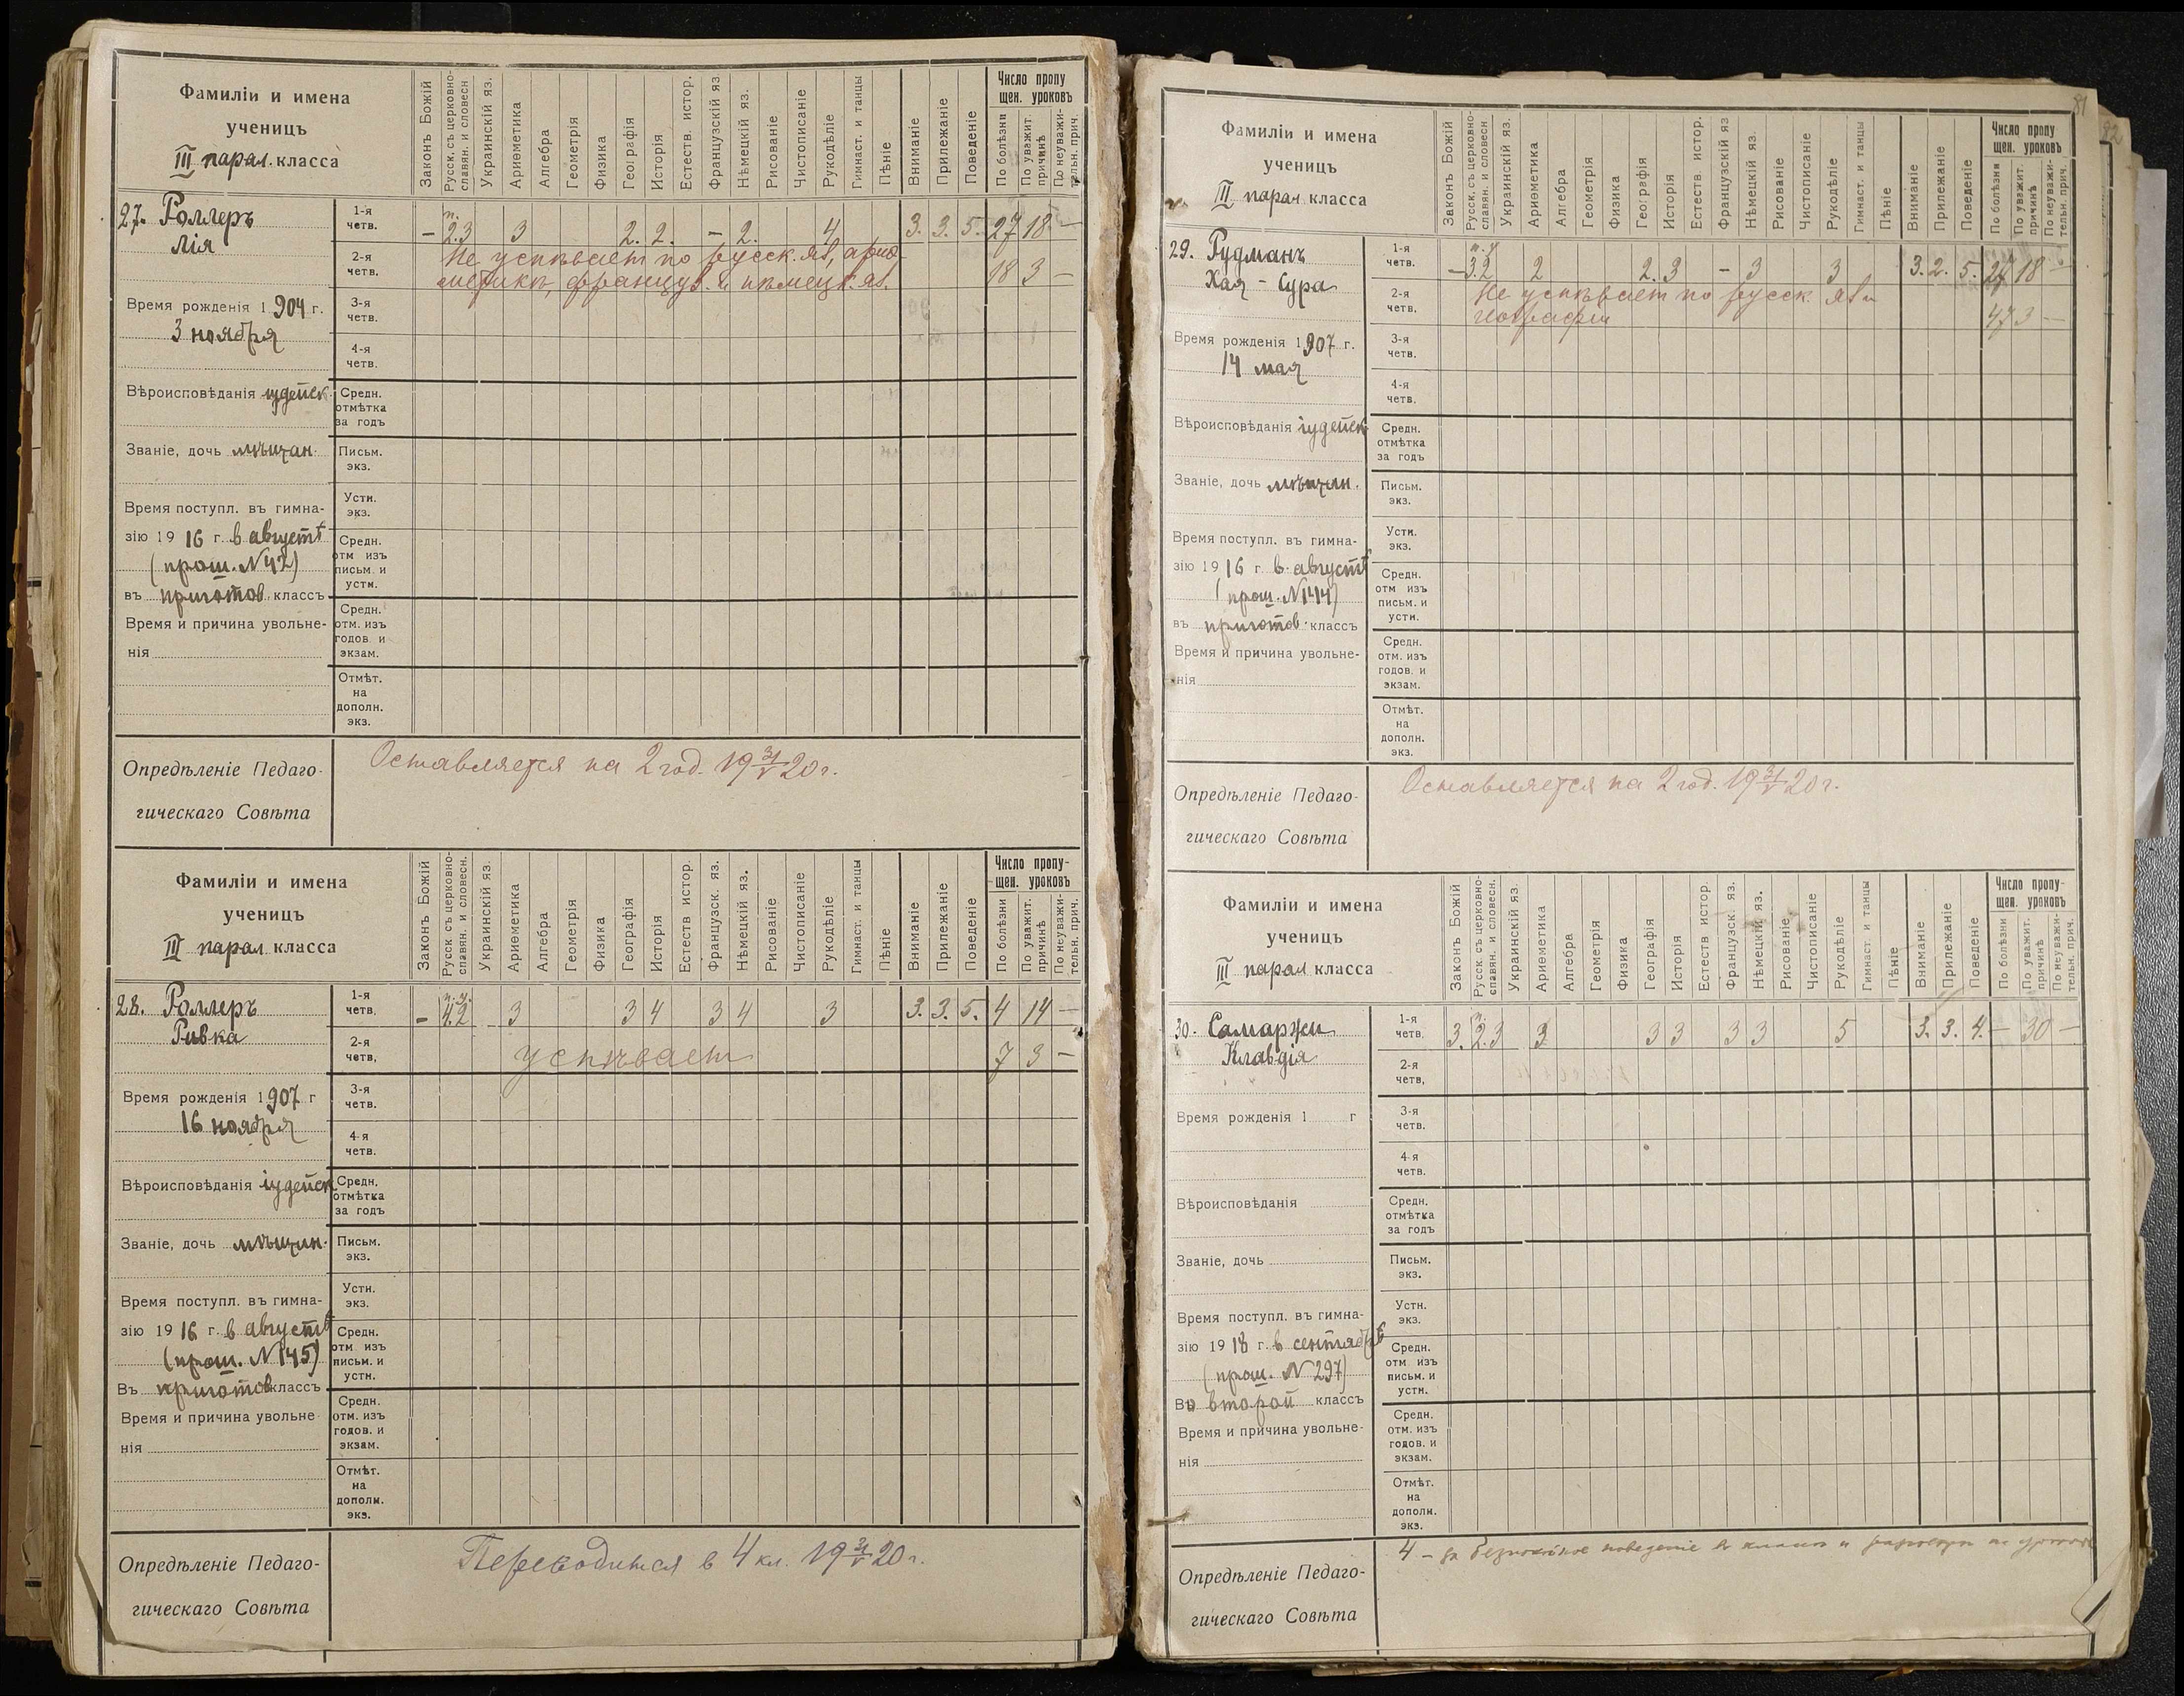 Фамиліи и имена
ученицъ
III парал. класса
Законъ Божій
Русск. съ церковно-
славян. и словесн
Украинскій яз.
Ариѳметика
Алгебра
Геометрія
Физика
Географія
Исторія
Естеств. истор.
Французскій яз
Нѣмецкій яз.
Рисованіе
Чистописаніе
Рукодѣліе
Гимнаст. и танцы
Пѣніе
Вниманіе
Прилежаніе
Поведеніе
Число пропу
щен. уроковъ
По болѣзни
По уважит.
причинѣ
По неуважи-
тельн. прич.
27. Роллеръ
Лія
1-я
четв.
– 2.3 3 2. 2. – 2. 4 3. 3. 5. 27 18 –
2-я
четв.
Не успѣваетъ по русск. яз., ариѳ-
метикѣ, француз. и нѣмецк. яз.
18 3 –
Время рожденія 1904 г.
3 ноября
3-я
четв.
4-я
четв.
Вѣроисповѣданія іудейск.
Средн.
отмѣтка
за годъ
Званіе, дочь мѣщан.
Письм.
экз.
Устн.
экз.
Время поступл. въ гимна-
зію 1916 г. в августѣ
(прош. N 42)
въ приготов. классъ
Средн.
отм изъ
письм. и
устн.
Время и причина увольне-
нія
Средн.
отм. изъ
годов. и
экзам.
Отмѣт.
на
дополн.
экз.
Опредѣленіе Педаго-
гическаго Совѣта
Оставляется на 2 год. 19 31/V 20 г.
Фамиліи и имена
ученицъ
III парал. класса
Законъ Божій
Русск. съ церковно-
славян. и словесн.
Украинскій яз.
Ариѳметика
Алгебра
Геометрія
Физика
Географія
Исторія
Естеств истор.
Французск. яз.
Нѣмецкій яз.
Рисованіе
Чистописаніе
Рукодѣліе
Гимнаст. и танцы
Пѣніе
Вниманіе
Прилежаніе
Поведеніе
Число пропу-
щен. уроковъ
По болѣзни
По уважит.
причинѣ
По неуважи-
тельн. прич.
28. Роллеръ
Ривка
1-я
четв.
– 4.2 3 3 4 3 4 3 3. 3. 5. 4 14 –
2-я
четв.
успѣваетъ
7 3 –
Время рожденія 1907 г
16 ноября
3-я
четв.
4-я
четв.
Вѣроисповѣданія іудейск
Средн.
отмѣтка
за годъ
Званіе, дочь мѣщан.
Письм.
экз.
Устн.
экз.
Время поступл. въ гимна-
зію 1916 г. в августѣ
(прош. N 145)
Въ приготов классъ
Средн.
отм изъ
письм. и
устн.
Время и причина увольне
нія
Средн.
отм. изъ
годов. и
экзам.
Отмѣт.
на
дополн.
экз.
Опредѣленіе Педаго-
гическаго Совѣта
Переводится в 4 кл. 19 31/V 20 г.
81
82
Фамиліи и имена
ученицъ
III парал класса
Законъ Божій
Русск. съ церковно-
славян. и словесн
Украинскій яз.
Ариѳметика
Алгебра
Геометрія
Физика
Географія
Исторія
Естеств. истор.
Французскій яз
Нѣмецкій яз.
Рисованіе
Чистописаніе
Рукодѣліе
Гимнаст. и танцы
Пѣніе
Вниманіе
Прилежаніе
Поведеніе
Число пропу
щен. уроковъ
По болѣзни
По уважит.
причинѣ
По неуважи-
тельн. прич.
29. Рудманъ
Хая - Сура
1-я
четв.
– 3.2 2 2. 3 – 3 3 3. 2. 5. 27 18 –
2-я
четв.
Не успѣваетъ по русск. яз и
географіи
47 3 –
Время рожденія 1907 г.
14 мая
3-я
четв.
4-я
четв.
Вѣроисповѣданія іудейск
Средн.
отмѣтка
за годъ
Званіе, дочь мѣщан.
Письм.
экз.
Устн.
экз.
Время поступл. въ гимна-
зію 1916 г в августѣ
(прош. N 144)
въ приготов. классъ
Средн.
отм изъ
письм. и
устн.
Время и причина увольне-
нія
Средн.
отм. изъ
годов. и
экзам.
Отмѣт.
на
дополн.
экз.
Опредѣленіе Педаго-
гическаго Совѣта
Оставляется на 2 год. 19 31/V 20 г.
Фамиліи и имена
ученицъ
III парал класса
Законъ Божій
Русск. съ церковно-
славян. и словесн.
Украинскій яз.
Ариѳметика
Алгебра
Геометрія
Физика
Географія
Исторія
Естеств истор.
Французск. яз.
Нѣмецкій яз.
Рисованіе
Чистописаніе
Рукодѣліе
Гимнаст. и танцы
Пѣніе
Вниманіе
Прилежаніе
Поведеніе
Число пропу-
щен. уроковъ
По болѣзни
По уважит.
причинѣ
По неуважи-
тельн. прич.
30. Самаржи
Клавдія
1-я
четв.
3. 2.3 3 3 3 3 3 5 3. 3. 4. – 30 –
2-я
четв.
Время рожденія 1 г
3-я
четв.
4-я
четв.
Вѣроисповѣданія
Средн.
отмѣтка
за годъ
Званіе, дочь
Письм.
экз.
Устн.
экз.
Время поступл. въ гимна-
зію 1918 г. в сентябрѣ
(прош. N 297)
Во второй классъ
Средн.
отм изъ
письм. и
устн.
Время и причина увольне-
нія
Средн.
отм. изъ
годов. и
экзам.
Отмѣт.
на
дополн.
экз.
Опредѣленіе Педаго-
гическаго Совѣта
4 – за поведеніе в классѣ и